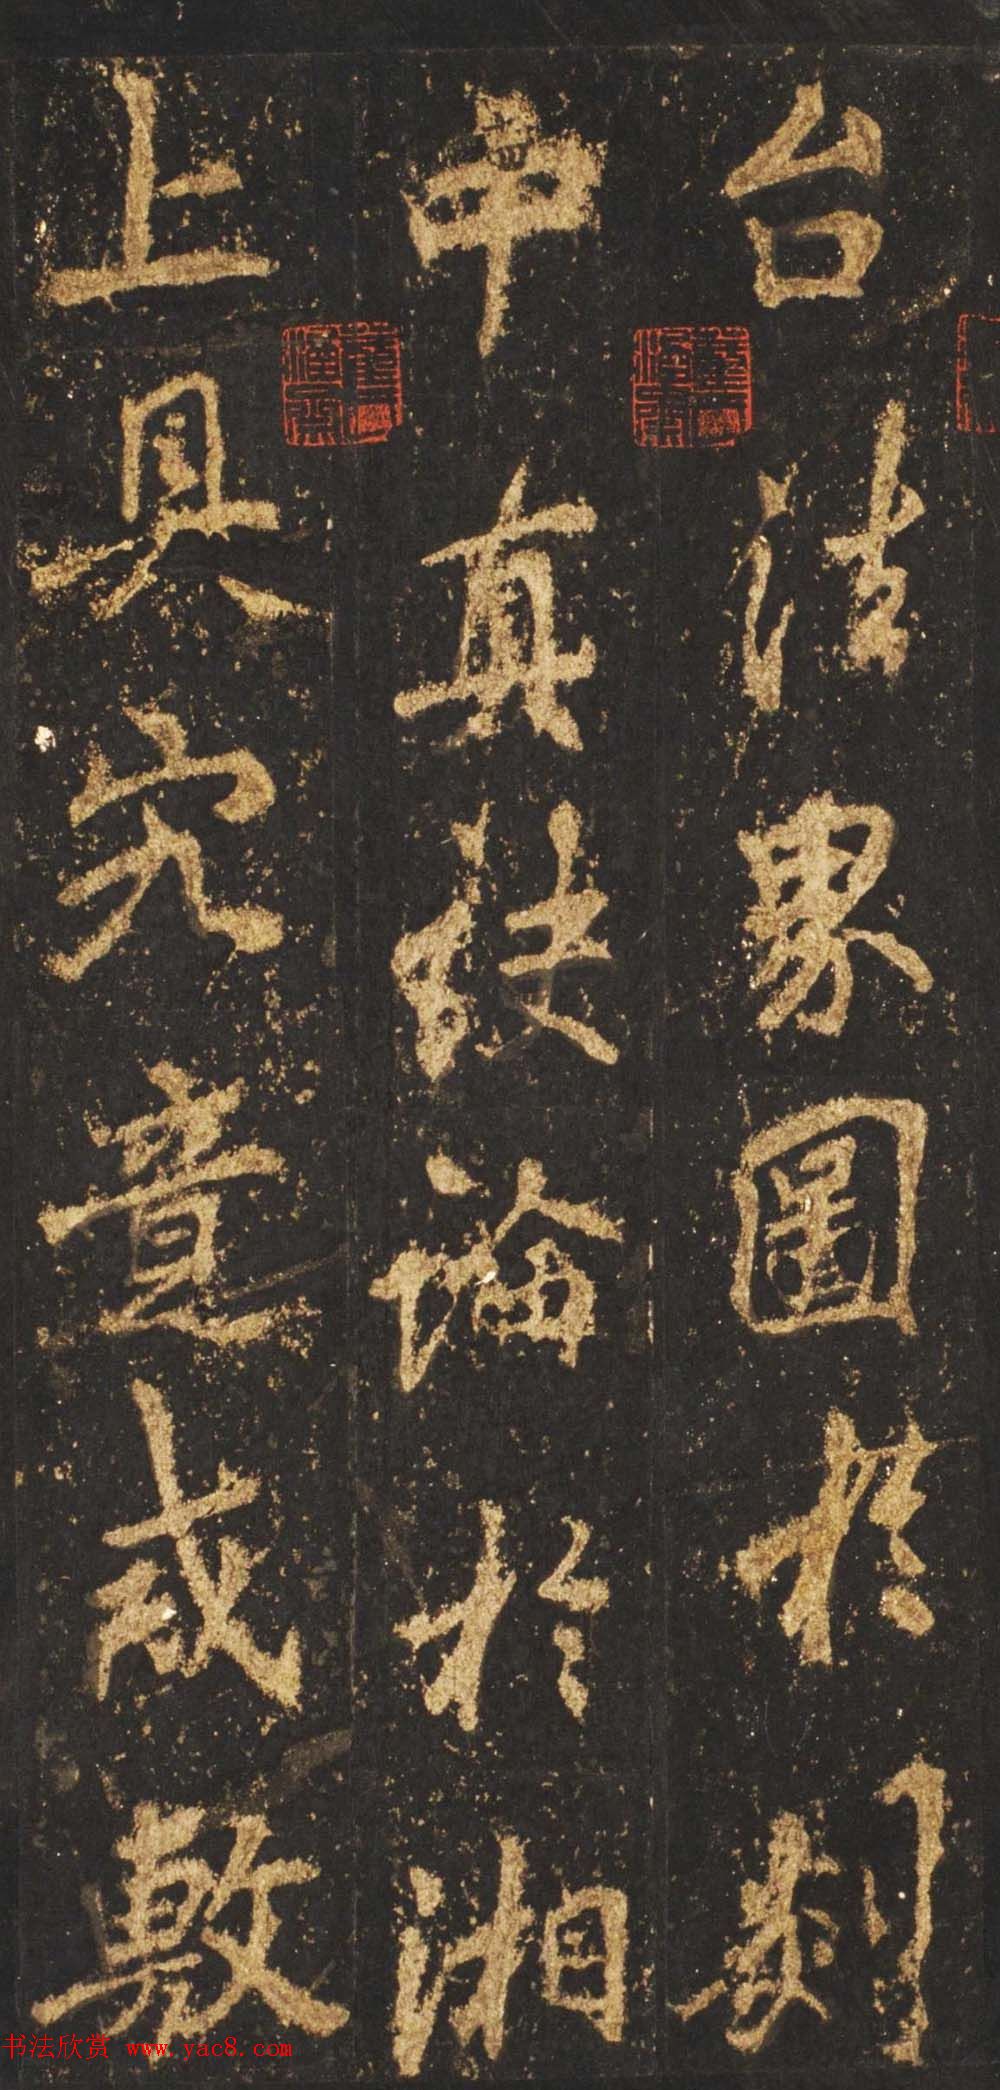 台法界圖於剡
中真訣論於湘
上具究意或敷
书法欣赏 www.yac8.com